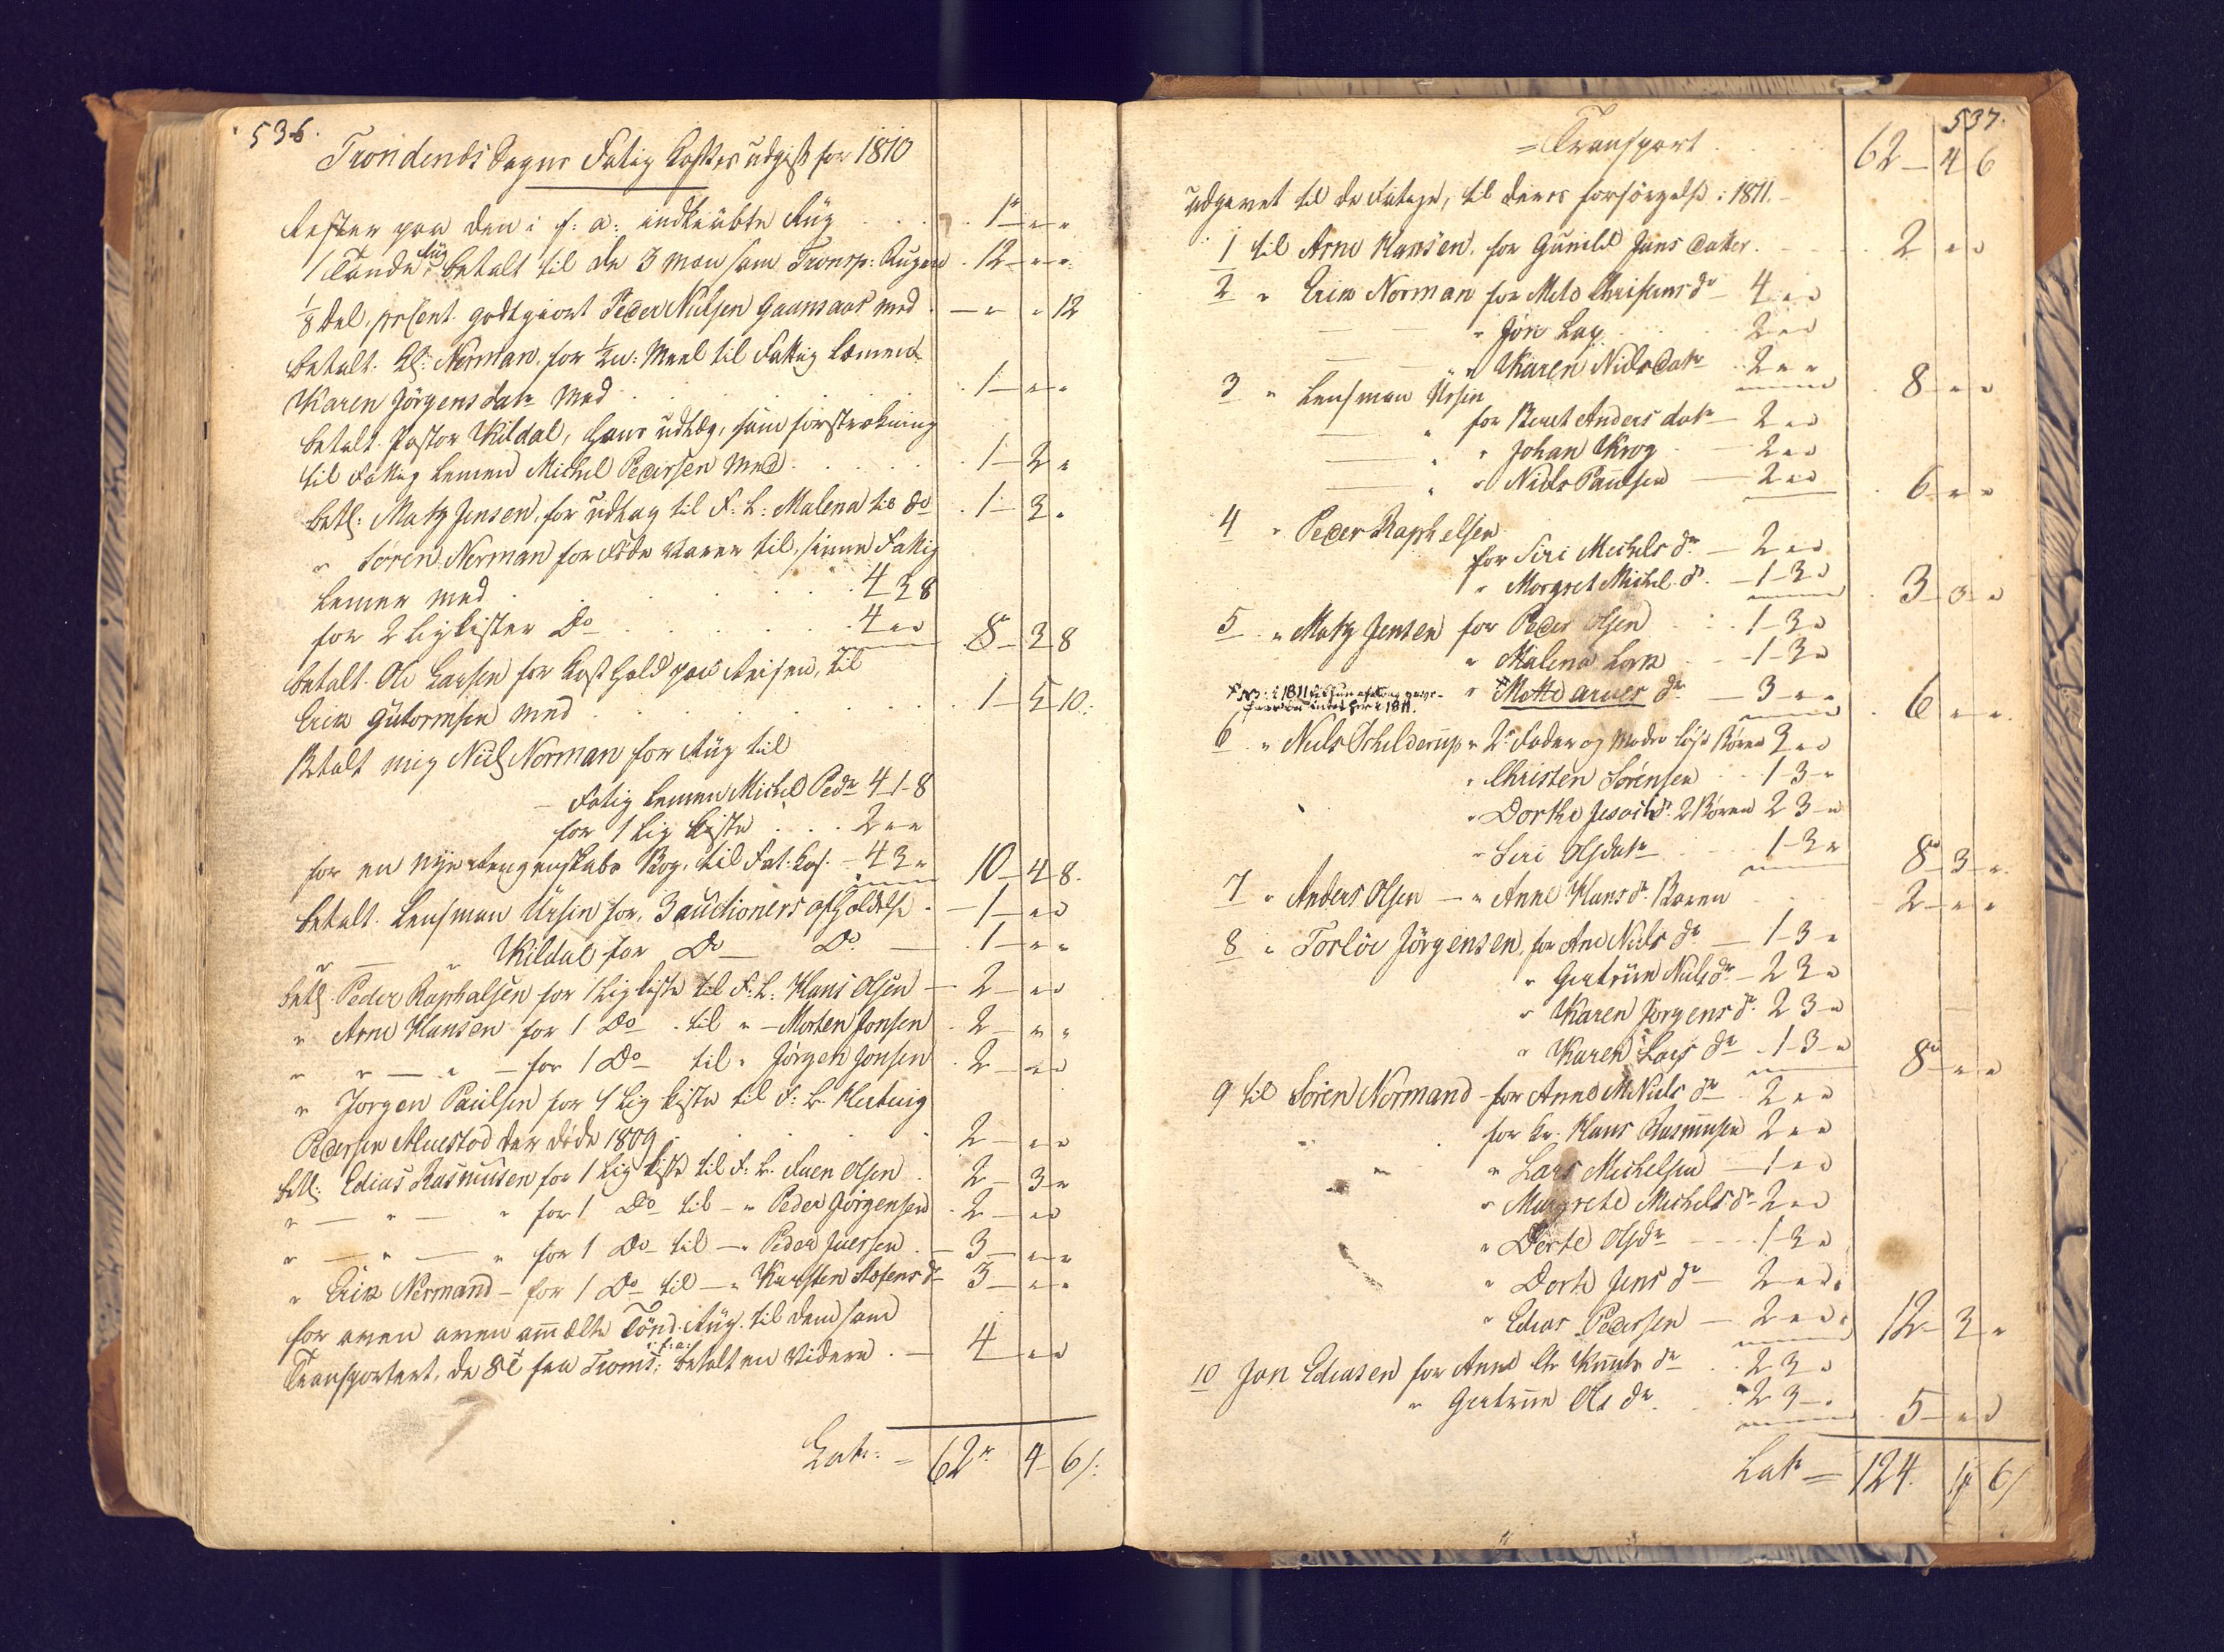 536.
Trondenes Sogns Fatig Casses udgift for 1810
Rester paa den i f: a: indkiøbte Rug . . . 1 " "
1 Tønde Rug betalt til de 3 mæn som Transp: Rugen . 12 " "
1/8 del, prcent. godtgiort Peder Nielsen Gaansaas med . " " 12
betalt. Kl: Norman, for 1/2 w: Meel til Fattig Lemmet
Karen Jörgensdatr med . . . 1 " "
betalt. Pastor Kildal, hans udlæg, som forstrekning
til Fattig Lemmed Michel Pedersen med . . . 1 2 "
betl: Matz Jensen, for udlag til F: L: Malena til do . 1 3 "
" Sören Norman for Föde Varer til sinne Fattig
Lemer med . . . 4 3 8
for 2 Ligkister Do . . . 4 " " 8 3 8
betalt. Ole Larsen for Kosthold paa Reisen, til
Erik Gutormsen med . . . 1 5 10:
Betalt mig Niels Norman for Rug til
Fatig Lemmen Michel Peder 4 1 8
for 1 Lig kiste . . . 2 " "
for en nÿe Regenskabs Bog, til Fat: Cas. 4 3 " 10 4 8.
betalt. Lensman Ursin for 3 auctioners afholdelse . 1 " "
" Kildal for Do Do 1 " "
betl. Peder Raphaelsen for 1 Ligkiste til F: L: Hans Olsen 2 " "
" Arne Hansen for 1 Do til " Morten Jonsen . 2 " "
" " " for 1 Do til " Jörgen Jonsen . 2 " "
" Jorgen Paulsen for 1 Lig kiste til F: L. Hertvig
Pedersen Aluestad der döde 1809 . . . 2 " "
betl: Edias Rasmusen for 1 Lig kiste til F: L. Iuen Olsen . 2 3 "
" " " for 1 Do til " Peder Jörgensen . 2 " "
" " " for 1 Do til " Peder Iuersen . 3 " "
" Erik Normand for 1 Do til " Kirsten Stefens dr 3 " "
for oven oven anmælte Tönd. Rug. til dem som
Transportert, de 8 t fra Troms: i f: a: betalt en Videre . 4 " "
Latr: = 62 r 4 6 /:
537.
= Transport . . . 62 4 6
udgivet til de Fatige, til deres forsörgelse i 1811.
1 til Arne Hansen, for Gunild Jens Datter . . 2 " "
2 " Erik Norman for Mete Christens dr 4 " "
" Jon Lag . . . 2 " "
" Karen Nielsdatr 2 " " 8 " "
3 " Lensman Ursin
for Beret Anders datr 2 " "
" Johan Krog 2 " "
" Niels Paulsen 2 " " 6 " "
4 " Peder Raphelsen
for Siri Michels dr 2 " "
" Morgret Michel. dr. 1 3 " 3 3 "
5 " Matz Jensen for Peder Olsen . . 1 3 "
" Malena Lork 1 3 "
" Mette Arnes dr 3 " " 6 " "
6 " Niels Schilderup " 2de Fader og Moder löse Børn 3 " "
" Christen Sörensen 1 3 "
" Dorthe Jesaiæ dr 2 Børen 2 3 "
" Siri Olsdatr 1 3 " 8 3 "
7 " Anders Olsen " Anne Hansdr. Baren . 2 " "
8 " Torlöv Jörgensen, for Ane Niels dr 1 3 "
" Giertrün Niels dr 2 3 "
" Karen Jörgens dr. 2 3 "
" Karen Lars dr 1 3 " 8 " "
9 til Sören Normand for Anne M Niels dr 2 " "
for Kr. Hans Rasmusen 2 " "
" Lars Michelsen 1 " "
" Margrete Michels dr 2 " "
" Dorte Olsdr 1 3 "
" Dorth Jens dr 2 " "
" Edias Pedersen 2 " " 12 3 "
10 Jon Ediasen for Anne Chr Knuts dr 2 3 "
" Giertrun Ols dr. 2 3 " 5 " "
Latr = 124. 1 6 /